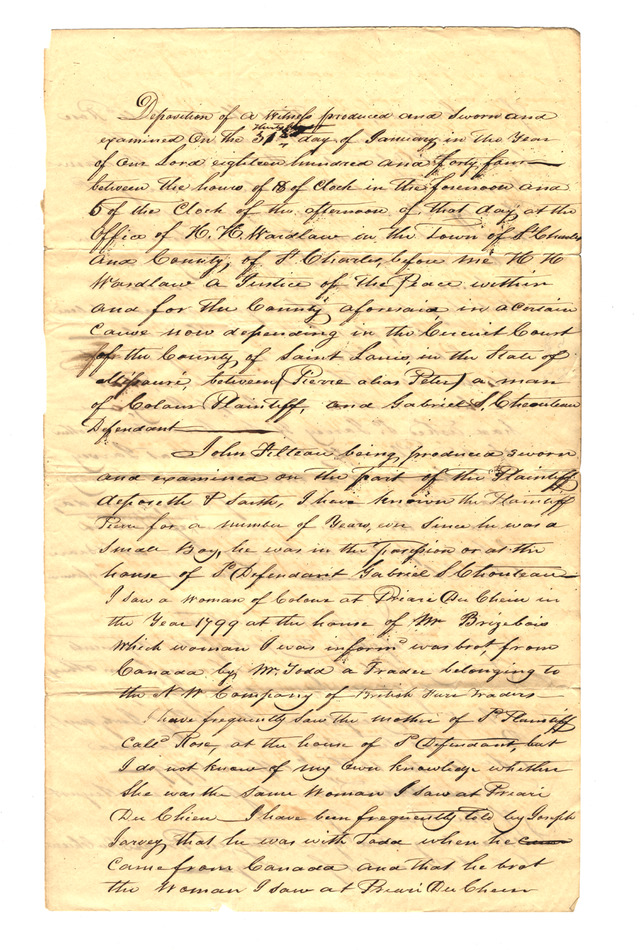 Deposition of a Witness produced and sworn and
examined On the thirty first 31st day of January in the Year
of our Lord eighteen hundred and forty four
between the hours of 8 of Clock in the forenoon and
5 of the Clock of the afternoon of that day, at the
Office of H. H. Wardlaw in the Town of St Charles
and County, of St Charles, before me H H
Wardlaw a Justice of the Peace within
and for the County aforesaid in a certain
cause now depending in the Circuit Court
of the County, of Saint Louis, in the State of
Missouri, between (Pierre alias Peter) a man
of Colour Plaintiff, and Gabriel S. Chouteau
Defendant
John Filteau being produced sworn
and examined on the part of the Plaintiff
deposeth & saith, I have known the Plaintiff
Pierre for a number of Years, ever since he was a
Small Boy, he was in the possession or at the
house of Sd Defendant Gabriel S Chouteau
I saw a Woman of Colour at Priari Du Chein in
the Year 1799 at the house of Mr Brizebois
which woman I was informd was brot from
Canada by Mr Todd a Trader belonging to
the N W Company of British Furr Traders
I have frequently saw the mother of Sd Plaintiff
Calld Rose, at the house of Sd Defendant, but
I do not know of my own knowledge whether
She was the same Woman I saw at Priari
Du Chien I have been frequently told by Joseph
Jarvey, that he was with Todd when he
came from Canada and that he brot
the Woman I saw at Priari Du Chein